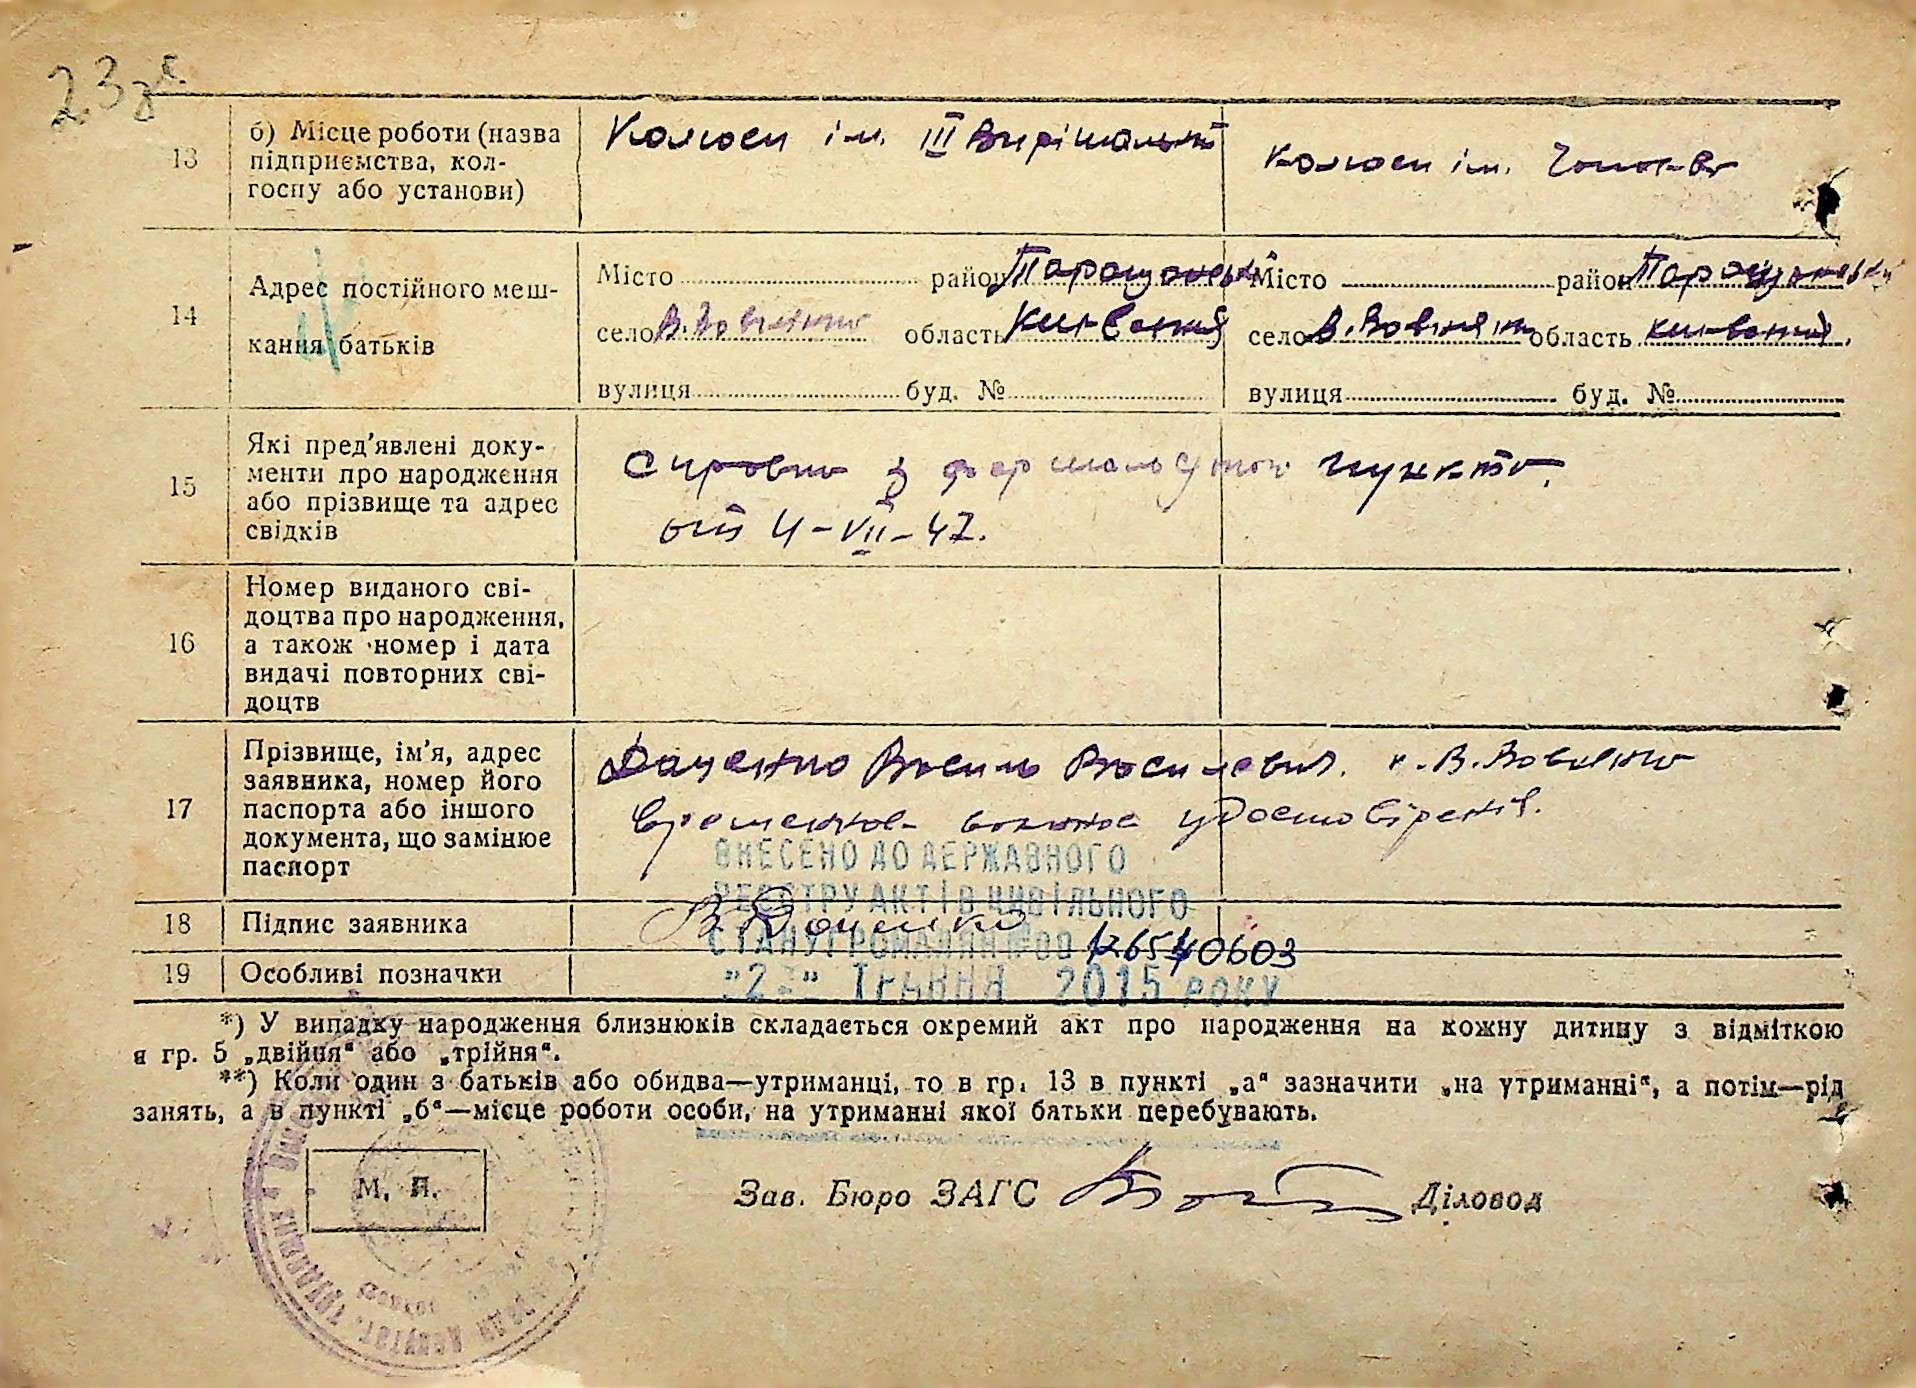 23
13
б) Місце роботи (назва
підприємства, кол-
госпу або установи)
ім. III Вирішальний
ім.
14
Адрес постійного меш-
кання батьків
Місто район Таращанський
село В. Вовнянка область Київська
вулиця буд. №
Місто район Таращанський
село В. Вовнянка область Київська
вулиця буд. №
15
Які пред'явлені доку-
менти про народження
або прізвище та адрес
свідків
Справка з пункта
от 4-VII-47.
16
Номер виданого сві-
доцтва про народження,
а також номер і дата
видачі повторних сві-
доцтв
17
Прізвище, ім'я, адрес
заявника, номер його
паспорта або іншого
документа, що замінює
паспорт
Даценко Василь Василевич. с. В. Вовнянка
ВНЕСЕНО ДО ДЕРЖАВНОГО
РЕЄСТРУ АКТІВ ЦИВІЛЬНОГО
СТАНУ ГРОМАДЯН №00 126540603
"2 " ТРАВНЯ 2015 РОКУ
18
Підпис заявника
В. Даценко
19
Особливі позначки
*) У випадку народження близнюків складається окремий акт про народження на кожну дитину з відміткою
в гр. 5 „двійня“ або „трійня“.
**) Коли один з батьків або обидва—утриманці, то в гр. 13 в пункті „а“ зазначити „на утриманні“, а потім—рід
занять, а в пункті „б“—місце роботи особи, на утриманні якої батьки перебувають.
М. П.
Зав. Бюро ЗАГС Діловод